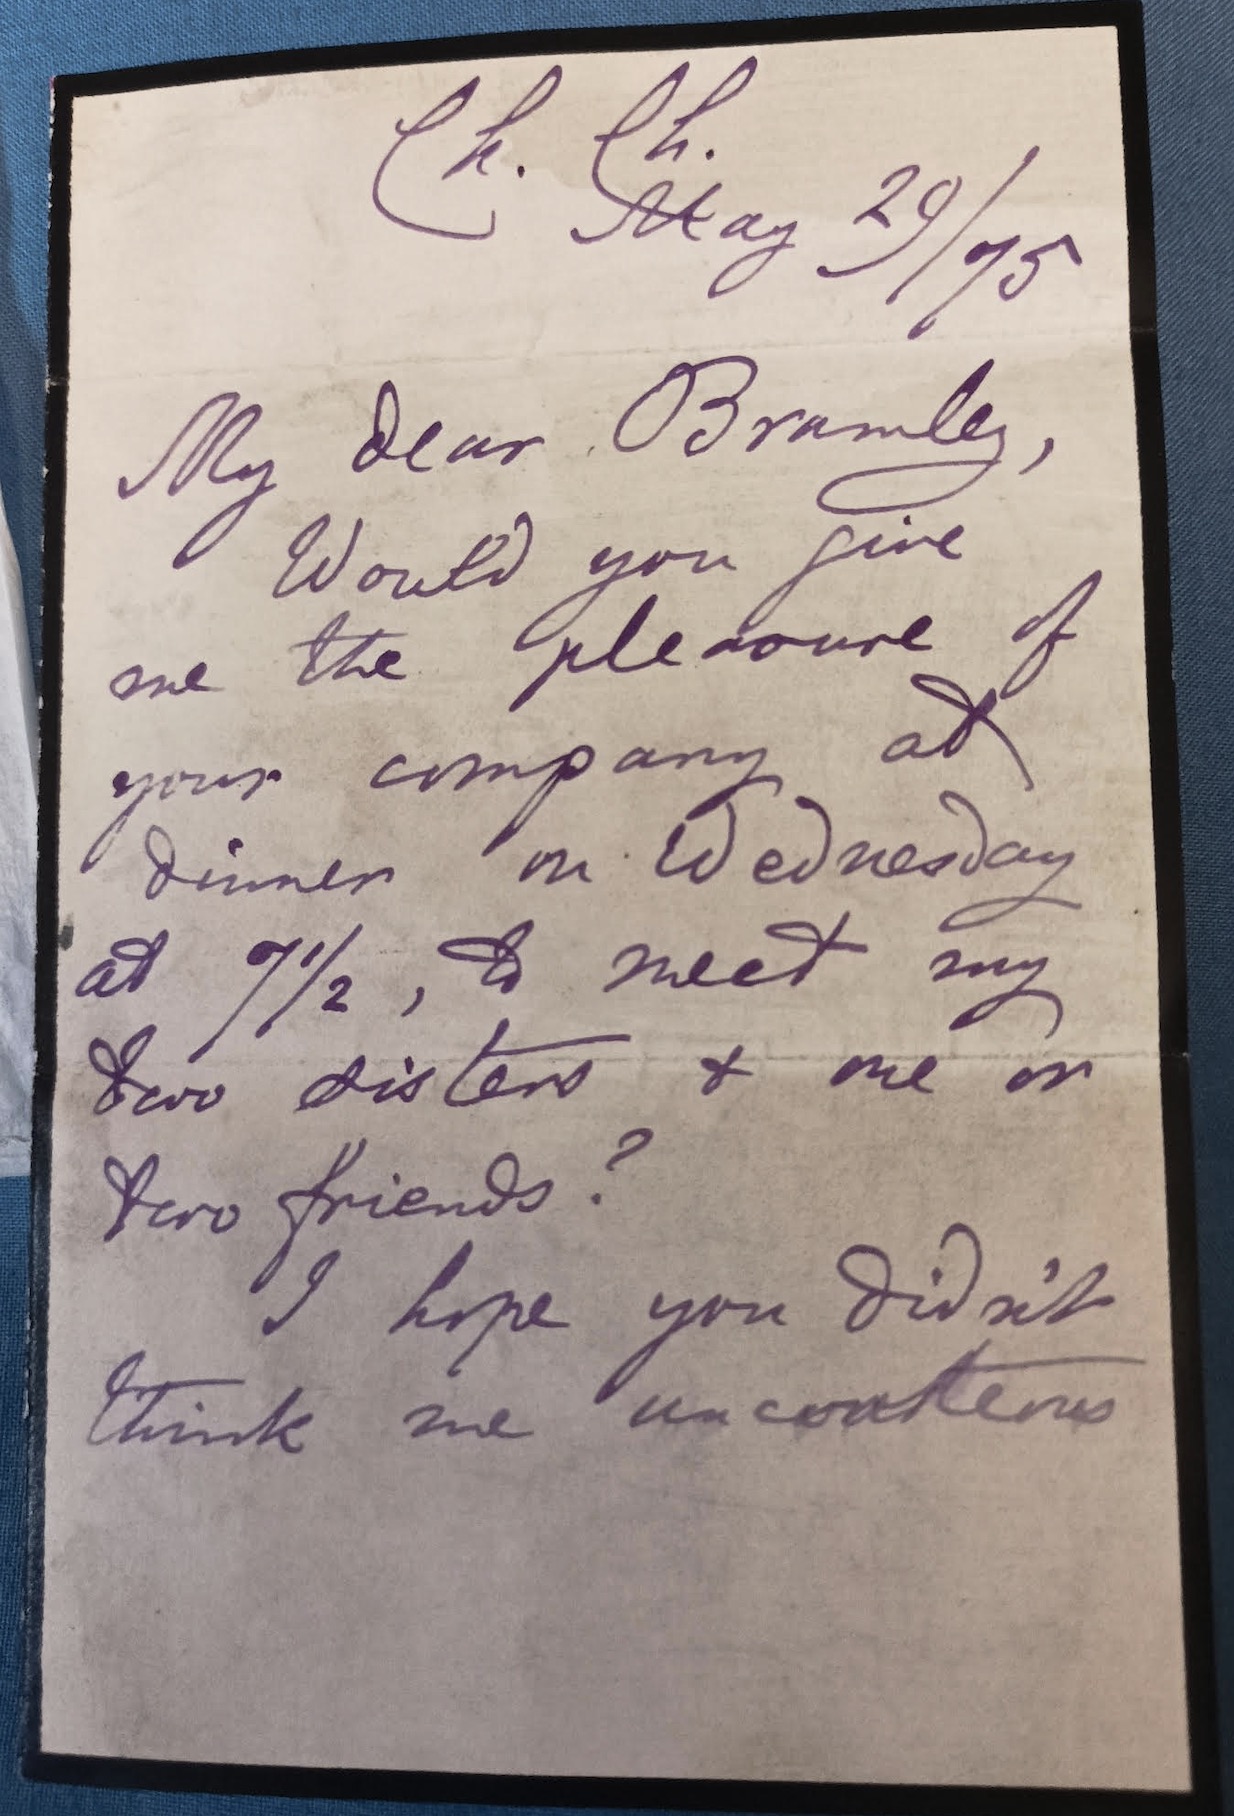 Ch. Ch.
May 29/75
My dear Bramley,
Would you give
me the pleasure of
your company at
dinner on Wednesday
at 7 1/2, to meet my
two sisters & one or
two friends?
I hope you didn't
think me uncourteous